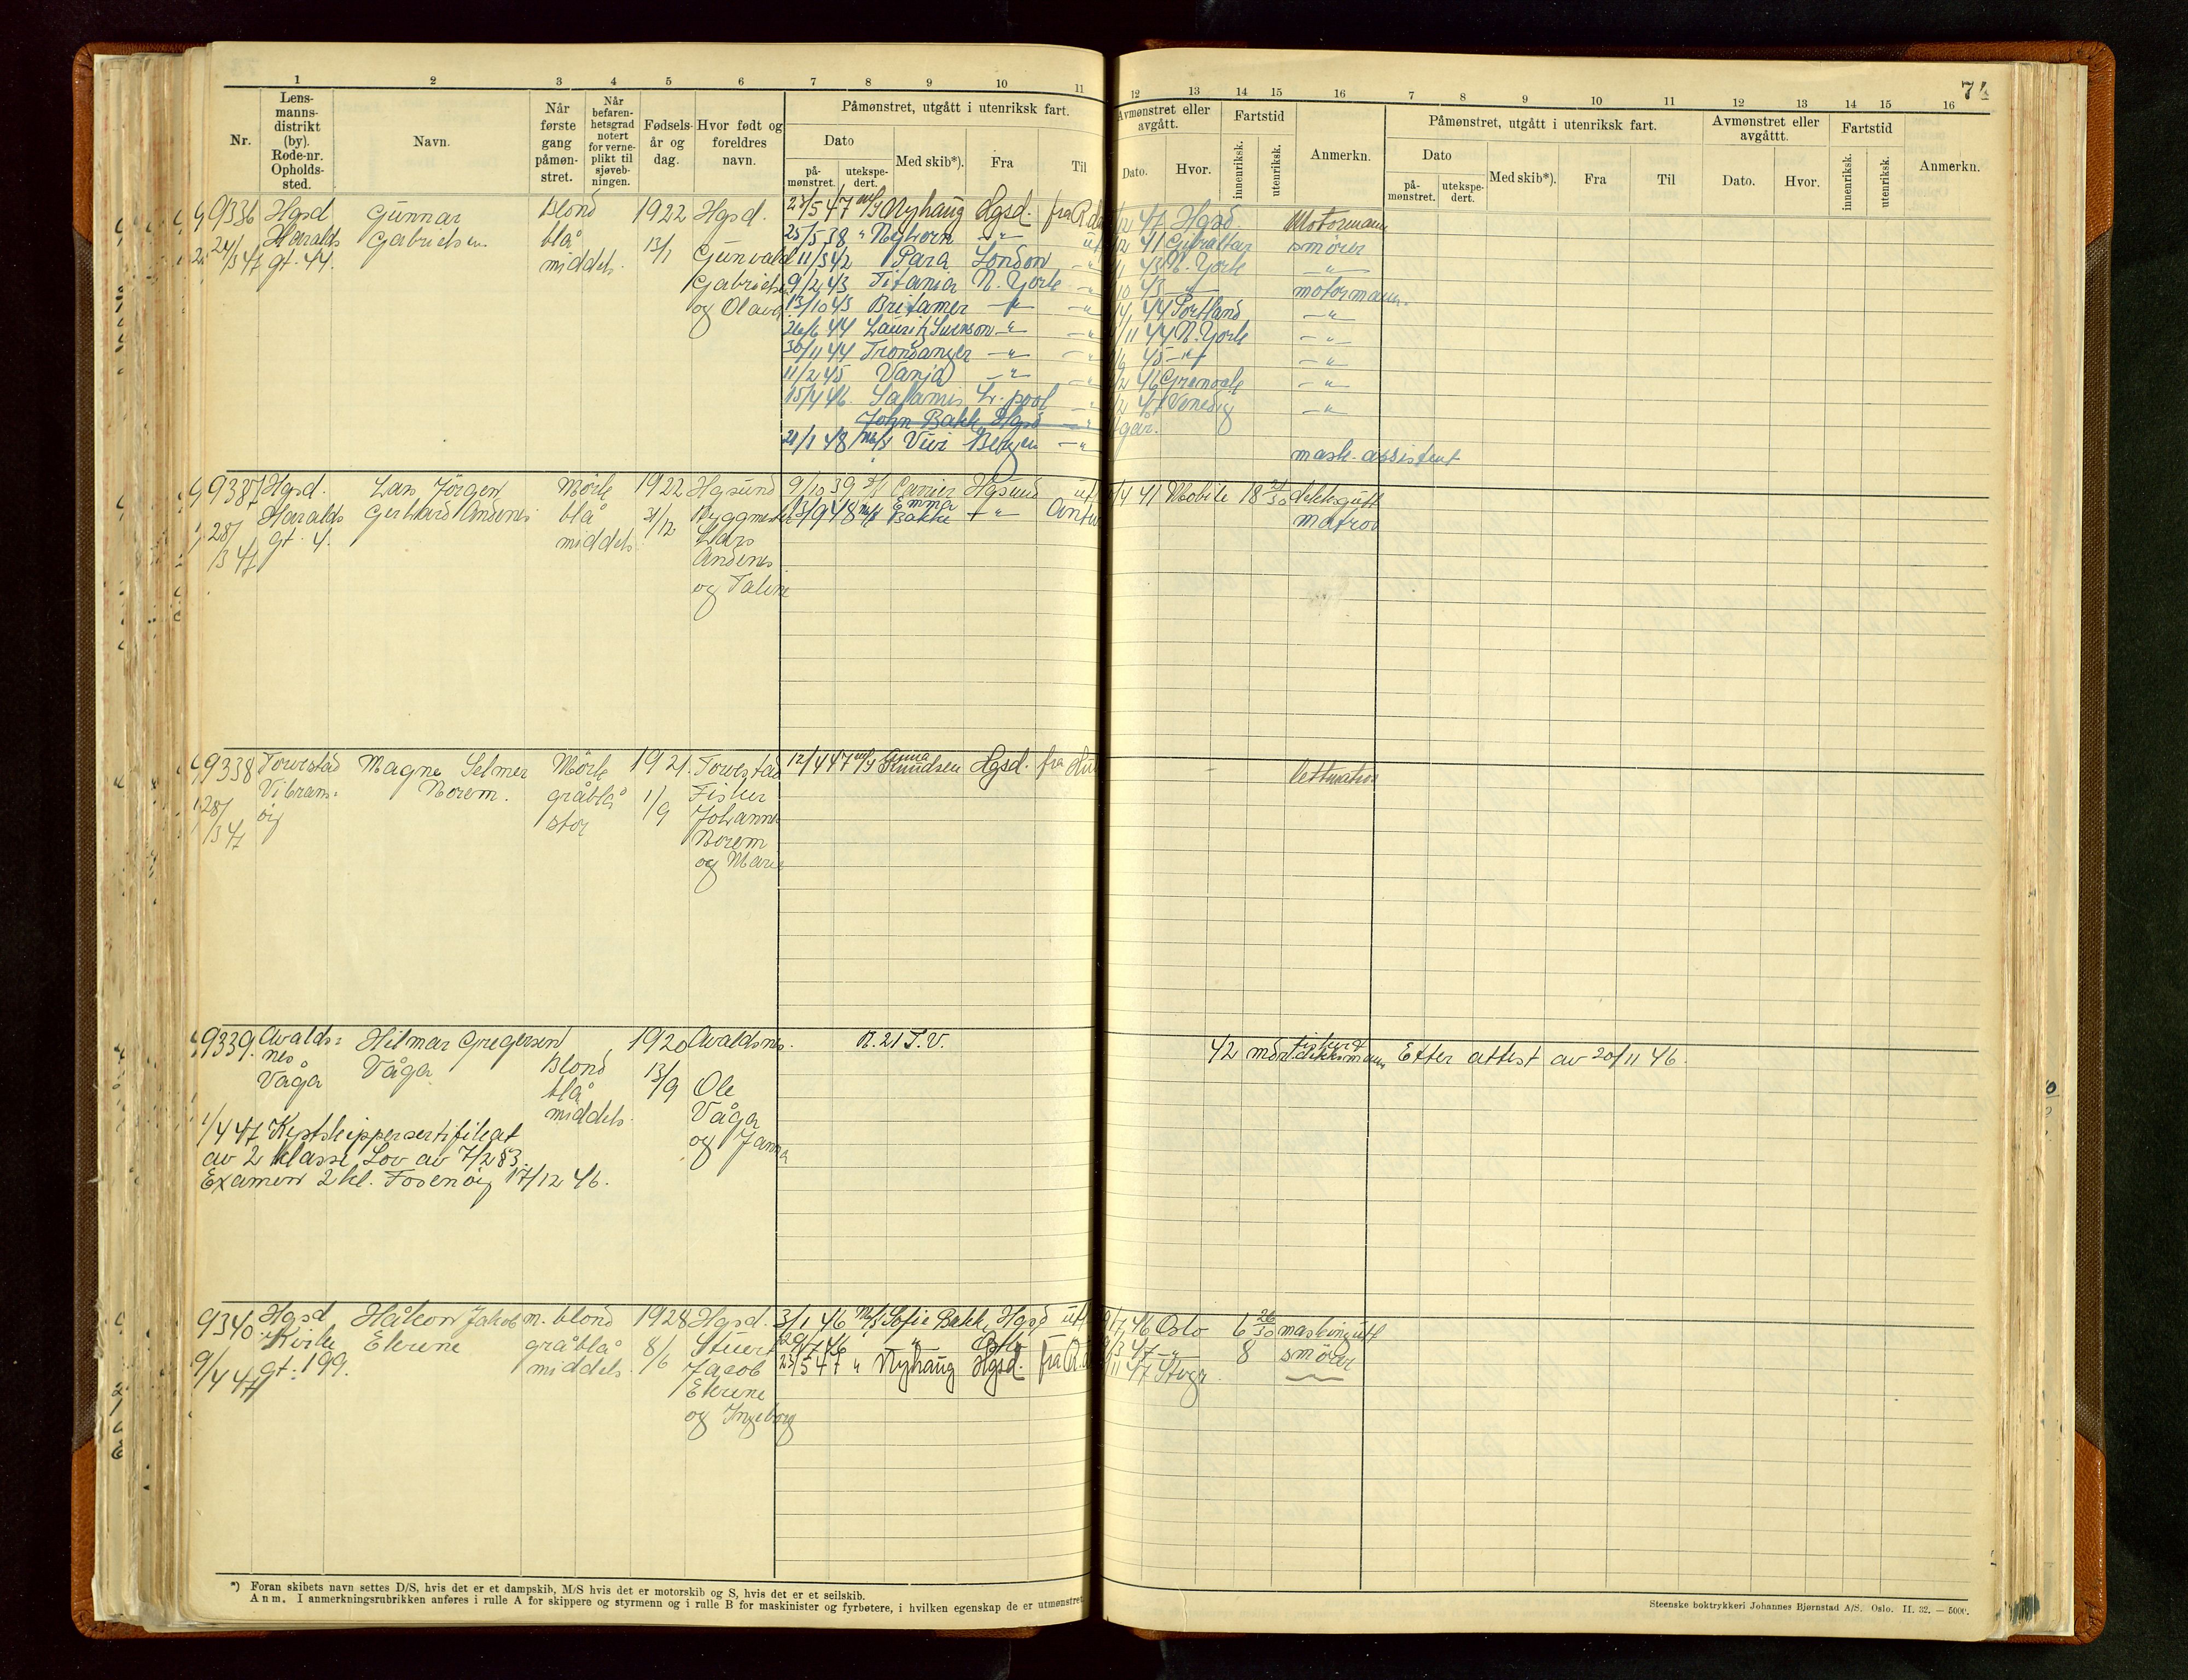 74
1 2 3 4 5 6 7 8 9 10 11 12 13 14 15 16 7 8 9 10 11 12 13 14 15 16
Nr.
Lens-
manns-
distrikt
(by).
Rode-nr.
Opholds-
sted.
Navn.
Når
første
gang
påmøn-
stret.
Når
befaren-
hetsgrad
notert
for verne-
plikt til
sjøveb-
ningen.
Fødsels-
år og
dag.
Hvor født og
foreldres
navn.
Påmønstret, utgått i utenriksk fart.
Dato
på-
mønstret.
utekspe-
dert.
Med skib*).
Fra
Til
Avmønstret eller
avgått.
Dato.
Hvor.
Fartstid
innenriksk.
utenriksk.
Anmerkn.
Påmønstret, utgått i utenriksk fart.
Dato
på-
mønstret.
utekspe-
dert.
Med skib*).
Fra
Til
Avmønstret eller
avgåttt.
Dato.
Hvor.
Fartstid
innenriksk.
utenriksk.
Anmerkn.
9336 Hgsd Gunnar blond 1922 Hgsd. 23/5 47 m/s Nyhaug Hgsd. fra 47 Hgsd. Motormann
24/3 47 Haralds Gabrielsen blå 13/1 25/5 38 " -"- ut 41 Gibraltar smører
gt. 44. middels. Gunvald 11/3 42 Para London -"- 43 N. York -"-
Gabriels 9/2 43 Titania N. York -"- 43 -"- motormann.
og Olava 13/10 43 Britamer -"- -"- 44 Portland -"-
26/6 44 Lauritz Swenson -"- -"- 44 N. York -"-
30/11 44 Trondanger -"- -"- 45 -"- -"-
11/2 45 Vanja -"- -"- 46 -"-
15/4 46 Salamis L.pool -"- 47 Venedig -"-
John Bakke Hgsd -"- går.
21/1 48 m/s Vivi Bergen -"- mask. assistent
9337 Hgsd. Lars Jørgen Mørk 1922 Hgsund 9/10 39 Carrier Hgsund ut 41 Mobile 18 21/30 dekksgutt
28/3 47 Haralds Gerhard Andenes blå 31/12 Byggmester 13/9 48 m/s Emma Bakke -"- Antw matros
gt. 4. middels Lars
Andenes
og Taline
9338 Torvestad Magne Selmer Mørk 1921. Torvestad 12/4 47 m/s Anna Knudsen Hgsd. fra lettmatros
28/3 47 Vibrans- Norem. gråblå 1/9 Fisker
øy stor Johannes
Norem
og Marie
9339. Avalds- Hilmar Gregersen 1920 Avaldsnes. R. 21 T.V. 42 mdr. fisker & dekksmann Efter attest av 20/11 46.
nes
Våga Våga Blond 13/9 Ole
blå Våga
middels. og Janna
1/4 47 Kystskippersertifikat
av 2 klasse Lov av 7/2 53.
Examen 2 kl. Fosenøy 17/12 46.
9340. Hgsd Håkon Jakob m. blond 1928 Hgsd. 3/1 46 M/s Sofie Bakke, Hgsd ut 46 Oslo 6 26/30 maskingutt
9/4 47 Kirke Eterene gråblå 8/6 Stuert 29/7 46 " Oslo 47 -"- 8 smører
gt. 199. middels. Jacob 23/5 47 " Nyhaug Hgsd. fra 47 Stvgr.
Eterene
og Ingeborg
*) Foran skibets navn settes D/S, hvis det er et dampskib, M/S hvis det er motorskib og S, hvis det er et seilskib.
Anm. I anmerkningsrubrikken anføres i rulle A for skippere og styrmenn og i rulle B for maskinister og fyrbøtere, i hvilken egenskap de er utmønstret.
Steenske boktrykkeri Johannes Bjørnstad A/S. Oslo. II. 32. — 5000.